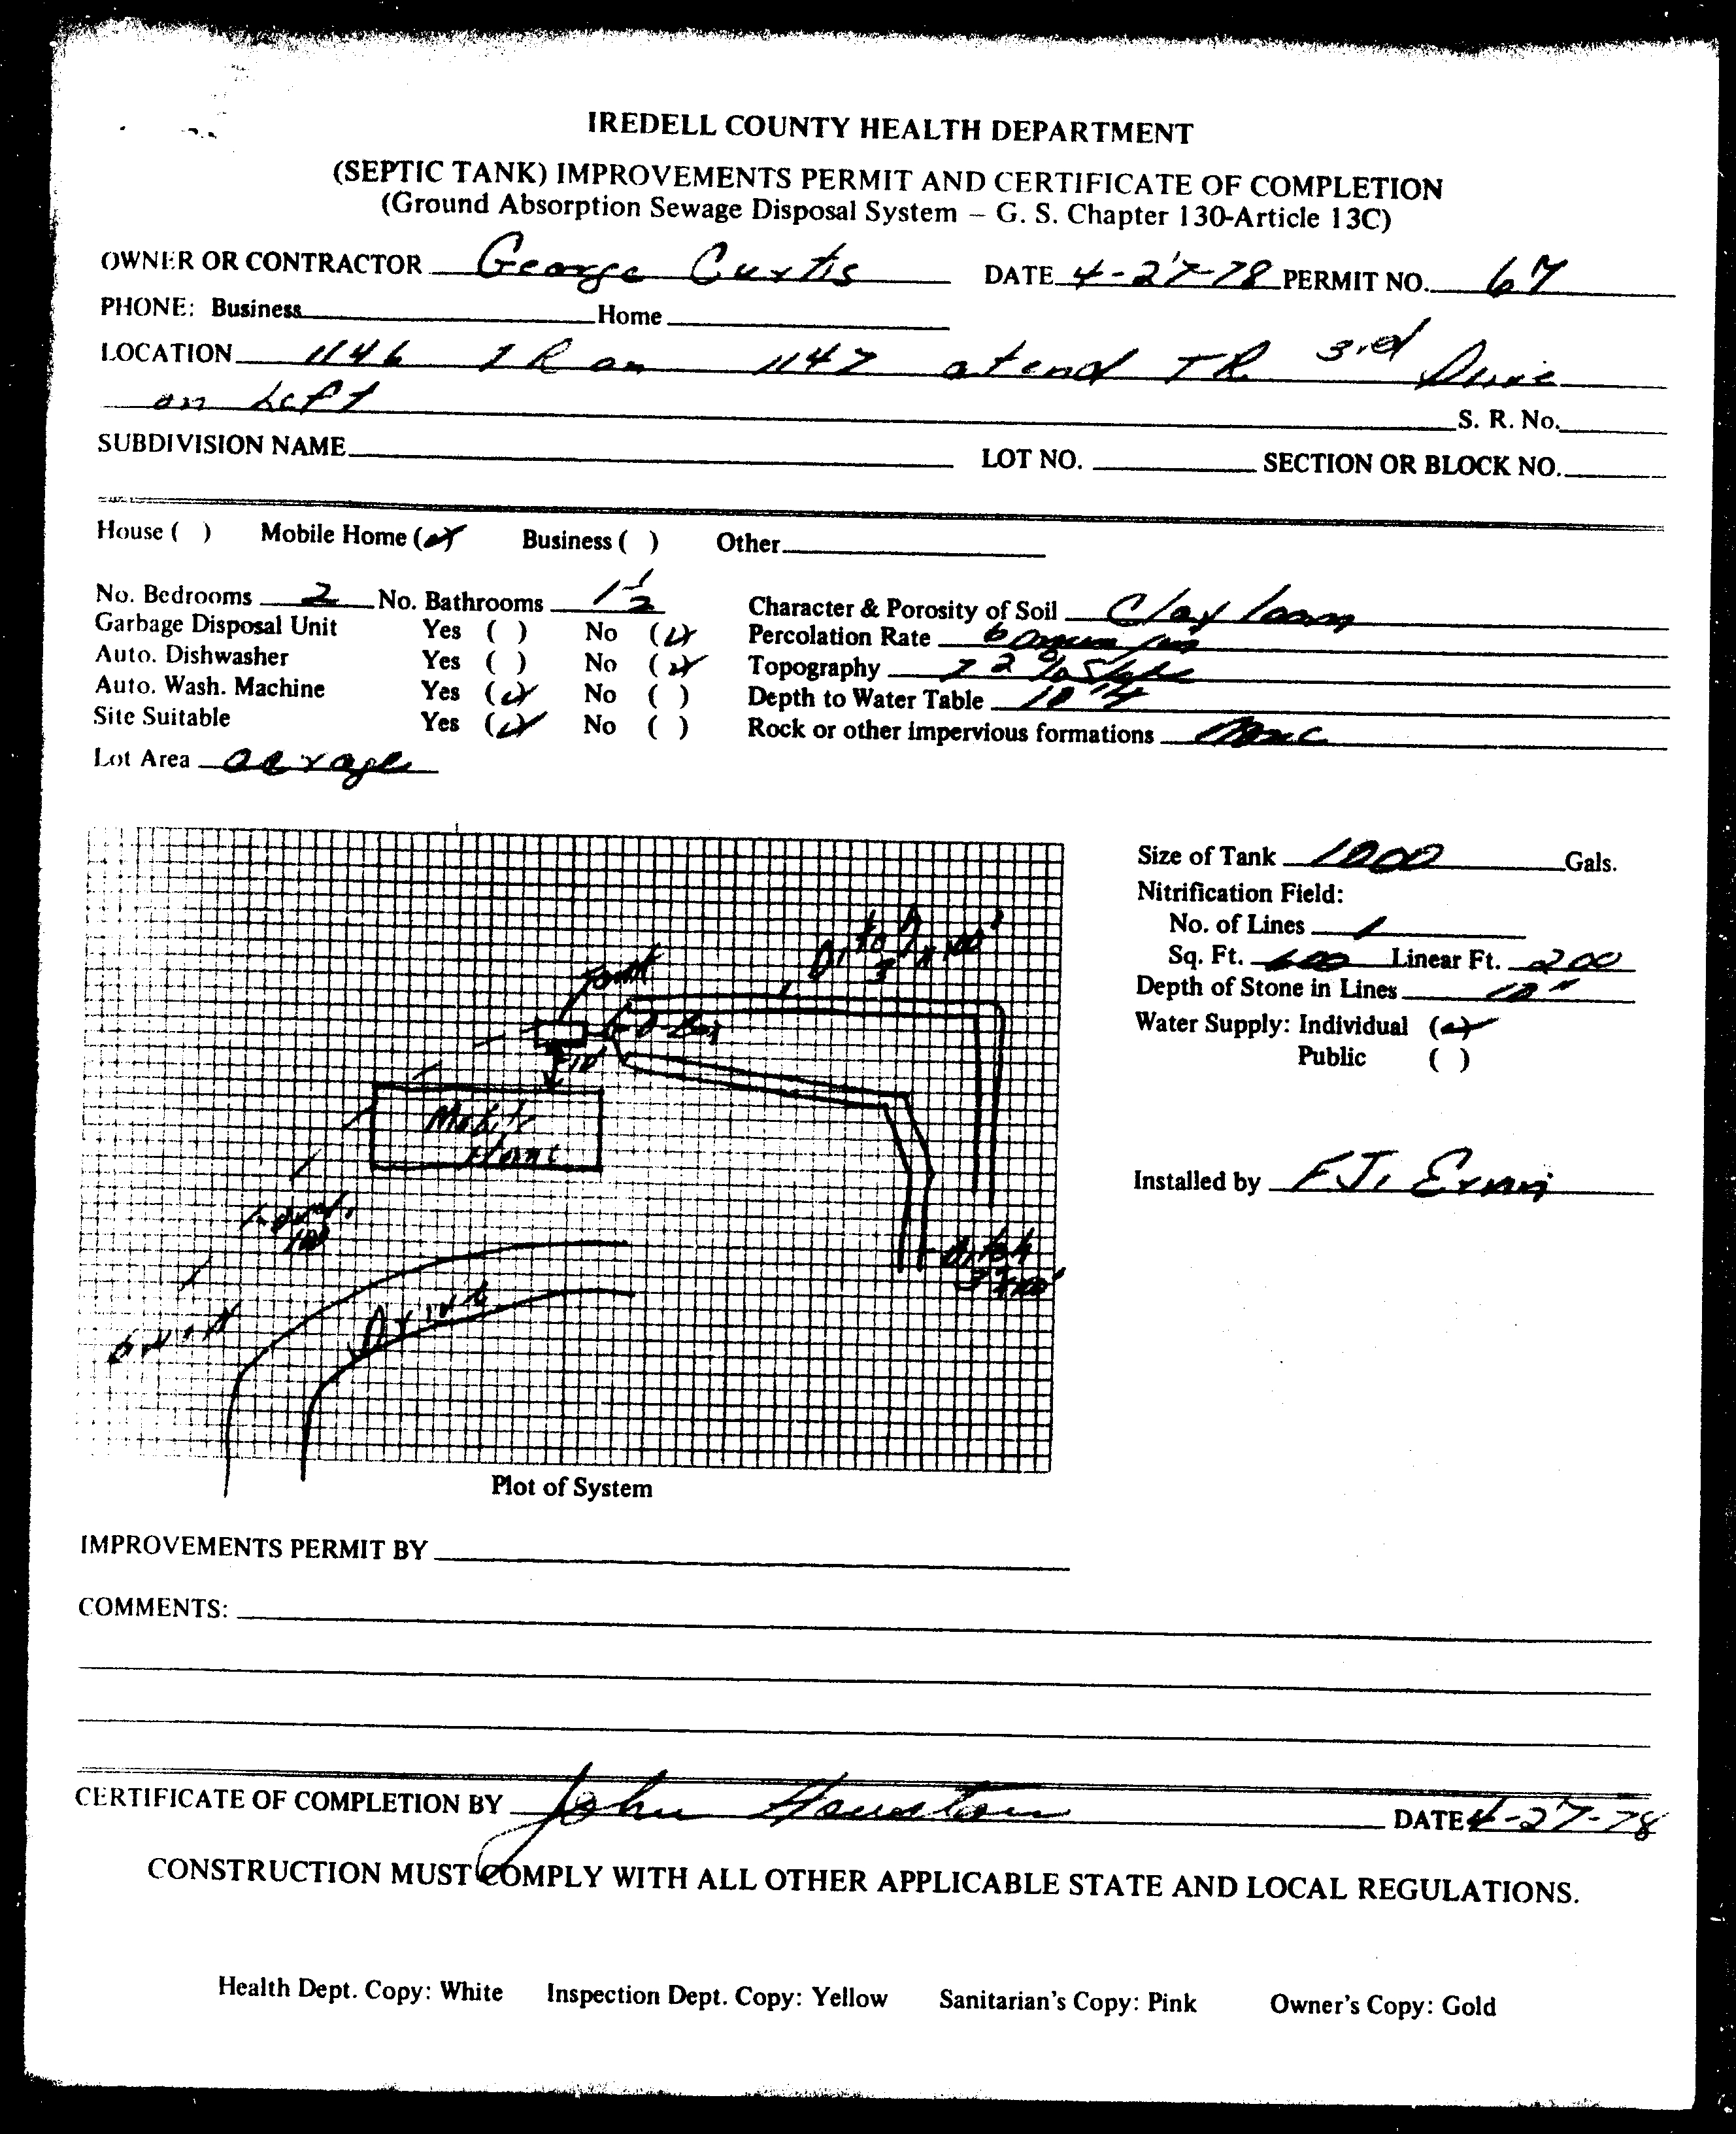 IREDELL COUNTY HEALTH DEPARTMENT
(SEPTIC TANK) IMPROVEMENTS PERMIT AND CERTIFICATE OF COMPLETION
(Ground Absorption Sewage Disposal System – G. S. Chapter 130-Article 13C)
OWNER OR CONTRACTOR George Curtis DATE 4-27-78 PERMIT NO. 67
PHONE: Business Home
LOCATION 1146 TR on 1147 at end TR 3rd Drive
on Left S. R. No.
SUBDIVISION NAME LOT NO. SECTION OR BLOCK NO.
House ( ) Mobile Home (✓) Business ( ) Other
No. Bedrooms 2 No. Bathrooms 1 1/2 Character & Porosity of Soil Clay loam
Garbage Disposal Unit Yes ( ) No (✓) Percolation Rate
Auto. Dishwasher Yes ( ) No (✓) Topography 2 % Slope
Auto. Wash. Machine Yes (✓) No ( ) Depth to Water Table
Site Suitable Yes (✓) No ( ) Rock or other impervious formations None
Lot Area acrage
Size of Tank 1000 Gals.
Nitrification Field:
No. of Lines 1
Sq. Ft. 600 Linear Ft. 200
Depth of Stone in Lines 10"
Water Supply: Individual (✓)
Public ( )
Installed by F.J.
Ditch
3' x 100'
Tank
D-Box
10'
Mobile
Home
100'
Ditch
3' x 100'
Drive
Plot of System
IMPROVEMENTS PERMIT BY
COMMENTS:
CERTIFICATE OF COMPLETION BY John Houston DATE 4-27-78
CONSTRUCTION MUST COMPLY WITH ALL OTHER APPLICABLE STATE AND LOCAL REGULATIONS.
Health Dept. Copy: White Inspection Dept. Copy: Yellow Sanitarian's Copy: Pink Owner's Copy: Gold